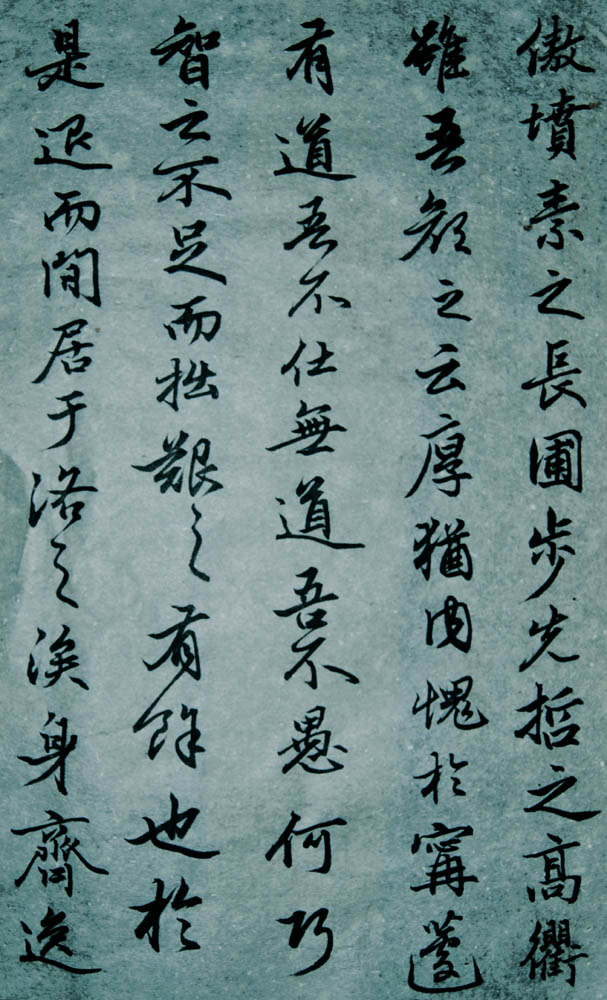 傲墳素之長圃步先哲之高衢
雖吾顏之云厚猶内愧於甯蘧
有道吾不仕無道吾不愚何巧
智之不足而拙艱之有餘也於
是退而閒居于洛之涘身齊逸